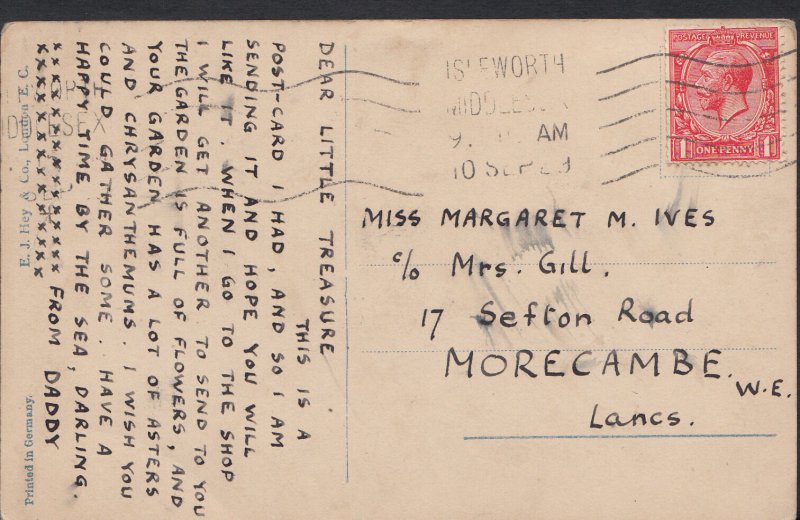 DEAR LITTLE TREASURE
THIS IS A
POST-CARD I HAD, AND SO I AM
SENDING IT AND HOPE YOU WILL
LIKE IT. WHEN I GO TO THE SHOP
I WILL GET ANOTHER TO SEND TO YOU
THE GARDEN IS FULL OF FLOWERS, AND
YOUR GARDEN HAS A LOT OF ASTERS
AND CHRYSANTHEMUMS. I WISH YOU
COULD GATHER SOME. HAVE A
HAPPY TIME BY THE SEA, DARLING.
xxxxxxxxxxxxxx FROM DADDY
xxxxxxxxxxxxxx
E. J. Hey & Co., London E. C.
Printed in Germany.
ISLEWORTH
MIDDLESEX
AM
10 SEP
POSTAGE REVENUE
1 ONE PENNY 1
MISS MARGARET M. IVES
c/o Mrs. Gill.
17 Sefton Road
MORECAMBE.
W.E.
Lancs.